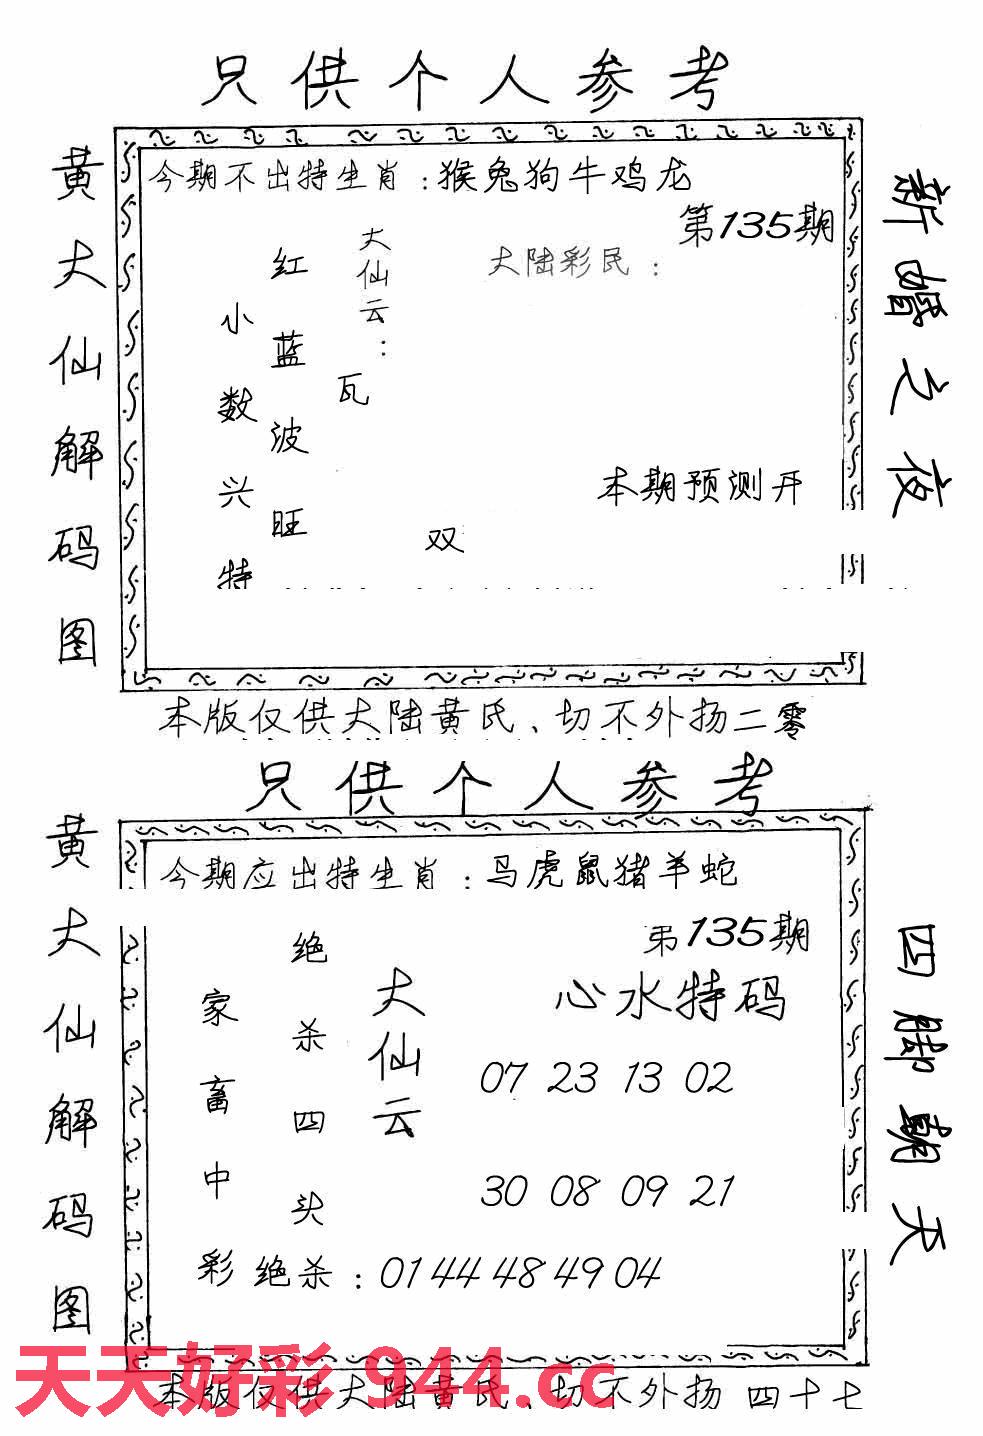 只供个人参考
黄大仙解码图
今期不出特生肖：猴兔狗牛鸡龙
第135期
新婚之夜
大仙云：
大陆彩民：
红蓝波旺
小数兴特
瓦
双
本期预测开
本版仅供大陆黄氏、切不外扬二零
只供个人参考
黄大仙解码图
今期应出特生肖：马虎鼠猪羊蛇
第135期
四脚朝天
绝杀四头
家畜中彩
大仙云
心水特码
07 23 13 02
30 08 09 21
绝杀：01 44 48 49 04
天天好彩 944.cc
本版仅供大陆黄氏、切不外扬 四十七